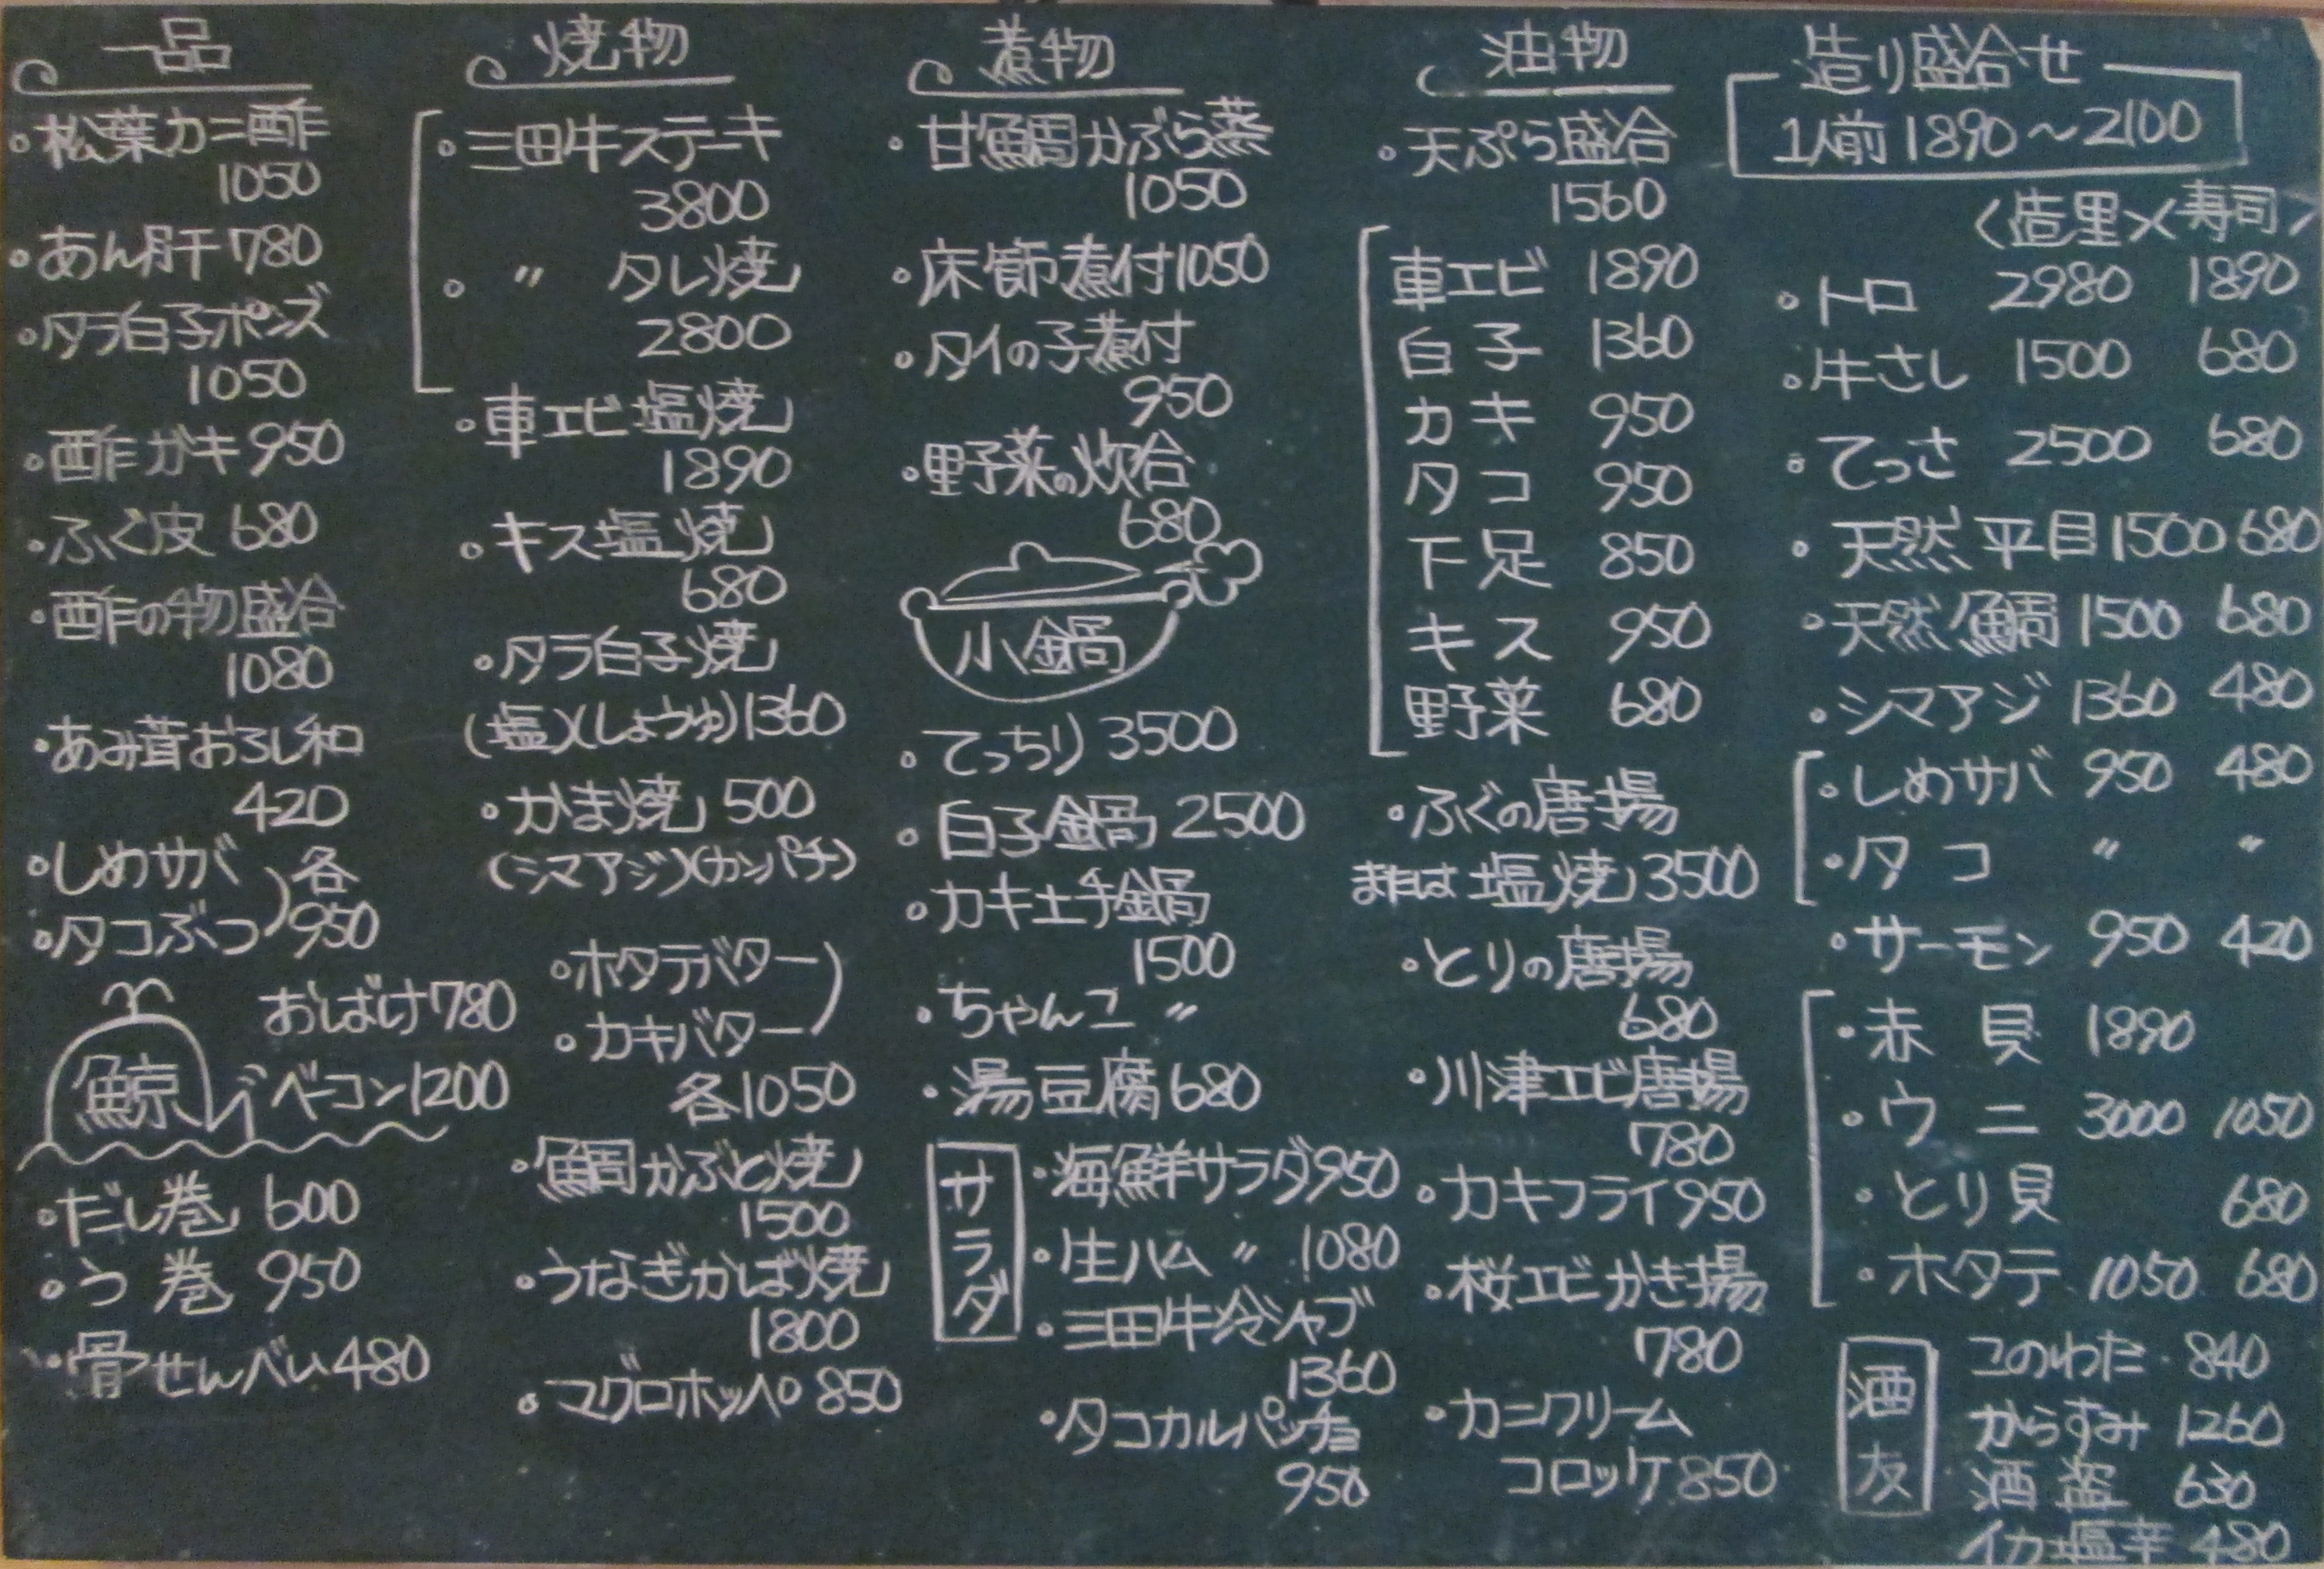 一品
・松葉カニ酢
1050
・あん肝780
・タラ白子ポンズ
1050
・酢ガキ950
・ふぐ皮 680
・酢の物盛合
1080
・あみ茸おろし和
420
・しめサバ
・タコぶつ
各
950
鯨
おばけ780
ベーコン1200
・だし巻 600
・う巻 950
・骨せんべい480
焼物
・三田牛ステーキ
3800
・〃 タレ焼
2800
・車エビ塩焼
1890
・キス塩焼
680
・タラ白子焼
(塩)(しょうゆ)1360
・かま焼 500
(シマアジ)(カンパチ)
・ホタテバター
・カキバター
各1050
・鯛かぶと焼
1500
・うなぎかば焼
1800
・マグロホッペ 850
煮物
・甘鯛かぶら蒸
1050
・床節煮付1050
・タイの子煮付
950
・野菜の炊合
680
小鍋
・てっちり 3500
・白子鍋 2500
・カキ土手鍋
1500
・ちゃんこ 〃
・湯豆腐680
サラダ
・海鮮サラダ950
・生ハム 〃 1080
・三田牛冷シャブ
1360
・タコカルパッチョ
950
油物
・天ぷら盛合
1560
車エビ 1890
白子 1360
カキ 950
タコ 950
下足 850
キス 950
野菜 680
・ふぐの唐揚
または塩焼 3500
・とりの唐揚
680
・川津エビ唐揚
780
・カキフライ950
・桜エビかき揚
780
・カニクリーム
コロッケ850
造り盛合せ
1人前1890〜2100
〈造里×寿司〉
・トロ 2980 1890
・牛さし 1500 680
・てっさ 2500 680
・天然平目1500 680
・天然鯛 1500 680
・シマアジ 1360 480
・しめサバ 950 480
・タコ 〃 〃
・サーモン 950 420
・赤貝 1890
・ウニ 3000 1050
・とり貝 680
・ホタテ 1050 680
酒友
このわた 840
からすみ 1260
酒盗 630
イカ塩辛 480